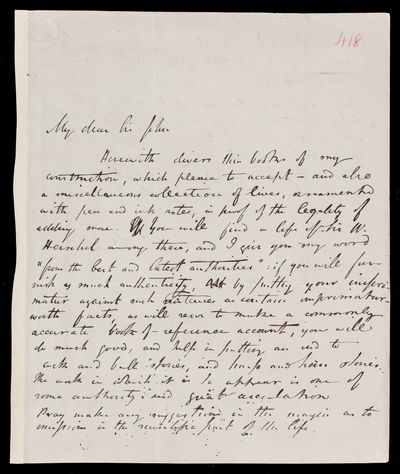 418
My dear Sir John
Herewith divers thin books of my
construction, which please to accept - and also
a miscellaneous collection of lives, ornamented
with pen and ink notes, in proof of the legality of
adding more. You will find a life of Sir W.
Herschel among them, and I give you my word
"from the best and latest authorities": if you will fur-
nish as much authenticity, by putting your infor-
mation against such sentences as contain
worth facts, as will serve to make a commonly
accurate book-of-reference account, you will
do much good, and help in putting an end to
cock and bull stories, and harp and horse stories.
The work in which it is to appear is one of
some authority and great circulation
Pray make any suggestions in the margin as to
omissions in the scientific part of the life.